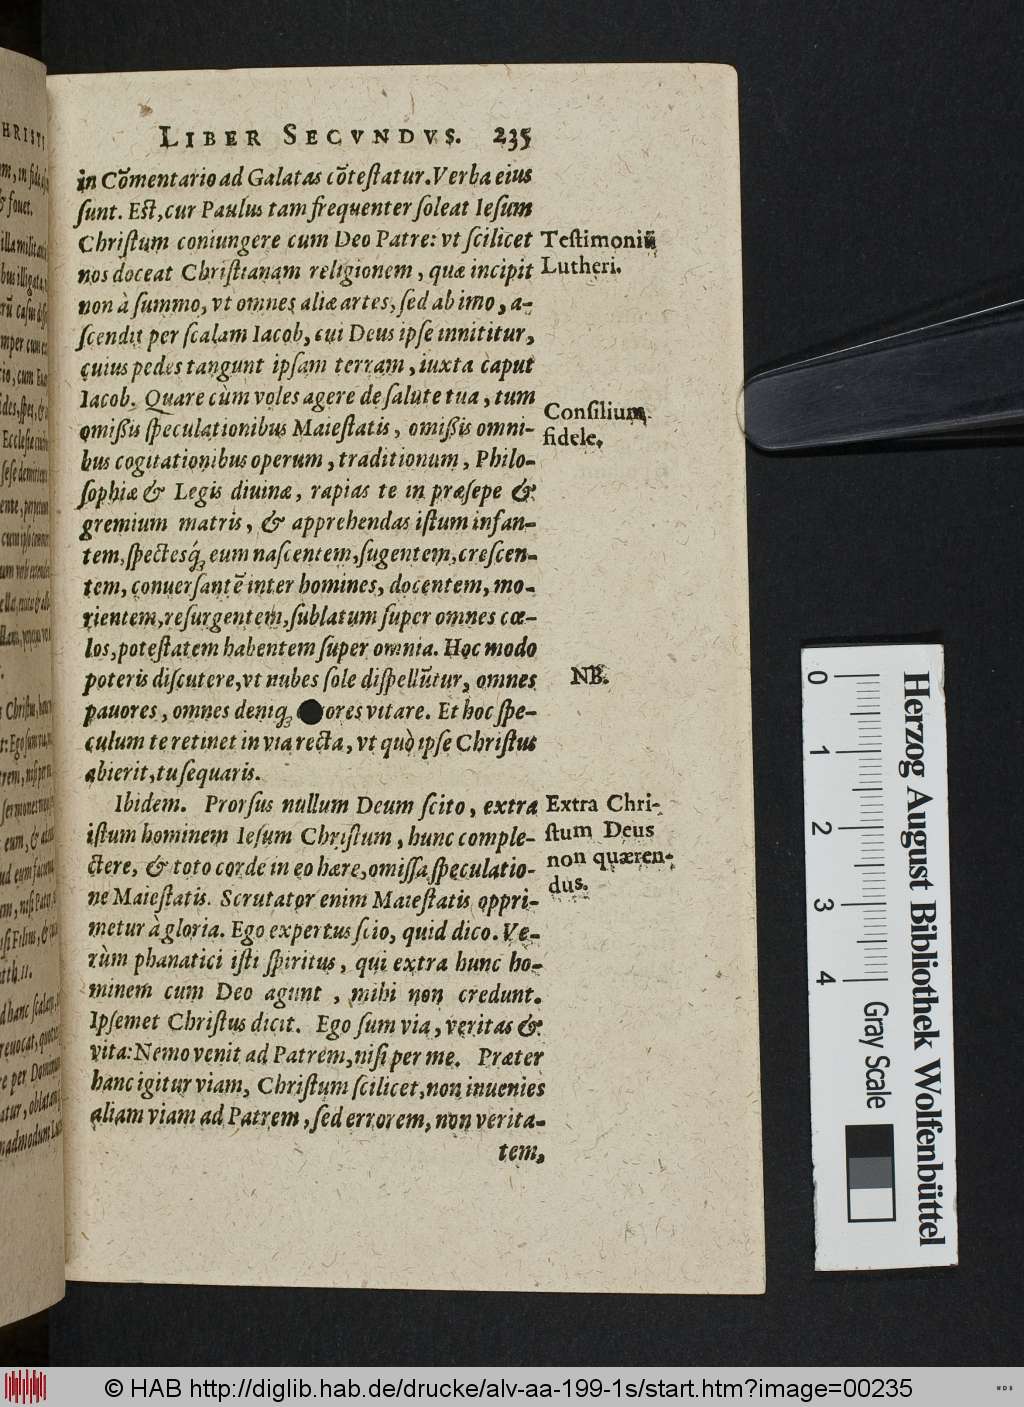 LIBER SECVNDVS. 235
in Cõmentario ad Galatas cõtestatur. Verba eius
sunt. Est, cur Paulus tam frequenter soleat Iesum
Christum coniungere cum Deo Patre: vt scilicet
nos doceat Christianam religionem, quæ incipit
non à summo, vt omnes aliæ artes, sed ab imo, a-
scendit per scalam Iacob, cui Deus ipse innititur,
cuius pedes tangunt ipsam terram, iuxta caput
Iacob. Quare cùm voles agere de salute tua, tum
omißis speculationibus Maiestatis, omißis omni-
bus cogitationibus operum, traditionum, Philo-
sophiæ & Legis diuinæ, rapias te in præsepe &
gremium matris, & apprehendas istum infan-
tem, spectesq́; eum nascentem, sugentem, crescen-
tem, conuersantẽ inter homines, docentem, mo-
rientem, resurgentem, sublatum super omnes cœ-
los, potestatem habentem super omnia. Hoc modo
poteris discutere, vt nubes sole dispellũtur, omnes
pauores, omnes deniq; ores vitare. Et hoc spe-
culum te retinet in via recta, vt quò ipse Christus
abierit, tu sequaris.
Ibidem. Prorsus nullum Deum scito, extra
istum hominem Iesum Christum, hunc comple-
ctere, & toto corde in eo hære, omissa speculatio-
ne Maiestatis. Scrutator enim Maiestatis oppri-
metur à gloria. Ego expertus scio, quid dico. Ve-
rùm phanatici isti spiritus, qui extra hunc ho-
minem cum Deo agunt, mihi non credunt.
Ipsemet Christus dicit. Ego sum via, veritas &
vita: Nemo venit ad Patrem, nisi per me. Præter
hanc igitur viam, Christum scilicet, non inuenies
aliam viam ad Patrem, sed errorem, non verita-
tem,
Testimoniũ
Lutheri.
Consilium
fidele.
NB.
Extra Chri-
stum Deus
non quæren-
dus.
Herzog August Bibliothek Wolfenbüttel
0 1 2 3 4 Gray Scale
© HAB http://diglib.hab.de/drucke/alv-aa-199-1s/start.htm?image=00235